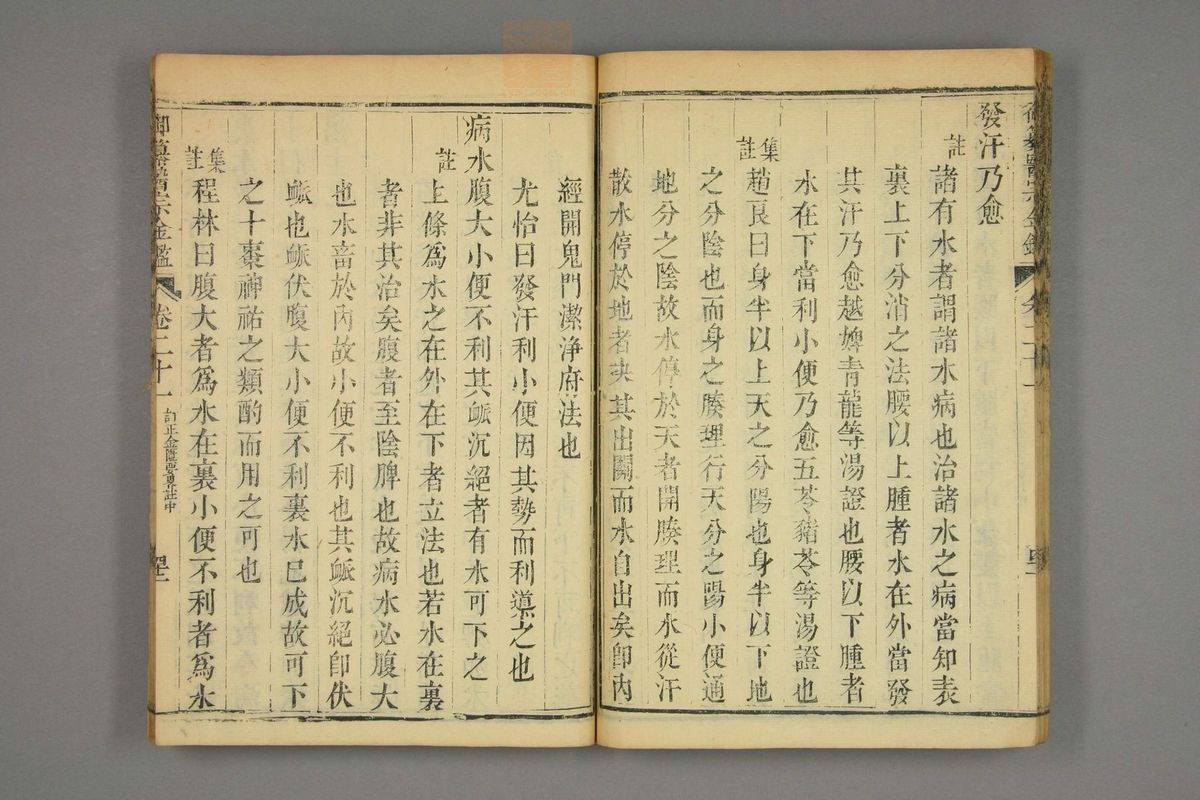 發汗乃愈
註
諸有水者謂諸水病也治諸水之病當知表
裏上下分消之法腰以上腫者水在外當發
其汗乃愈越婢青龍等湯證也腰以下腫者
水在下當利小便乃愈五苓豬苓等湯證也
集註
趙良曰身半以上天之分陽也身半以下地
之分陰也而身之腠理行天分之陽小便通
地分之陰故水停於天者開腠理而水從汗
散水停於地者決其出關而水自出矣卽內
經開鬼門潔淨府法也
尤怡曰發汗利小便因其勢而利導之也
病水腹大小便不利其脈沉絕者有水可下之
註
上條為水之在外在下者立法也若水在裏
者非其治矣腹者至陰脾也故病水必腹大
也水畜於內故小便不利也其脈沉絕卽伏
脈也脈伏腹大小便不利裏水已成故可下
之十棗神祐之類酌而用之可也
集註
程林曰腹大者為水在裏小便不利者為水
御纂醫宗金鑑
卷二十一
訂正金匱要畧註中